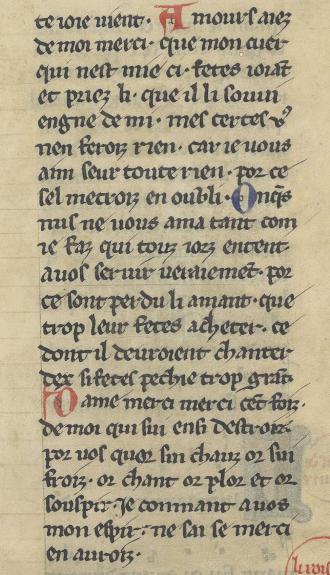 te ioie uient. Amours aiez
de moi merci. que mon cuer
qui nest mie ci. fetes ioiāt
et priez li. que il li souui
engne de mi. mes certes v9
nen feroiz rien. car ie uous
aim seur toute rien. por ce
sel metroiz en oubli. Onq̄s
nus ne uous ama tant com
ie faz qui touz iorz entent
a uos seruir ueraiemēt. por
ce sont perdu li amant. que
trop leur fetes acheter. ce
dont il deuroient chanter
dex si fetes pechie trop grāt.
Dame merci merci cēt foiz.
de moi qui sui ensi destroiz.
por uos quor sui chauz or sui
froiz. or chant or plor et or
souspir. Je conmant a uos
mon esp̄ir. ne sai se merci
en auroiz.